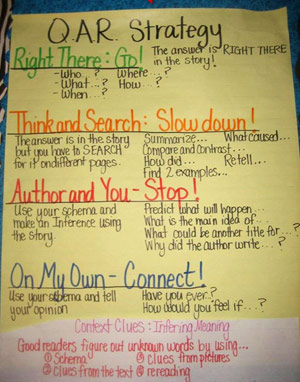 Q.A.R. Strategy
Right There: Go! The answer is RIGHT THERE
in the story!
-Who...? Where...?
-What...? How...?
-When...?
Think and Search: Slow down!
The answer is in the story
but you have to SEARCH
for it on different pages.
Summarize... What caused...
Compare and Contrast...
How did... Retell...
Find 2 examples...
Author and You - Stop!
Use your schema and
make an Inference using
the story.
Predict what will happen...
What is the main idea of...
What could be another title for...?
Why did the author write...?
On My Own - Connect!
Use your schema and tell
your opinion
Have you ever?
How would you feel if...?
Context Clues: Infering Meaning
Good readers figure out unknown words by using...
① Schema ③ clues from pictures
② clues from the text ④ rereading